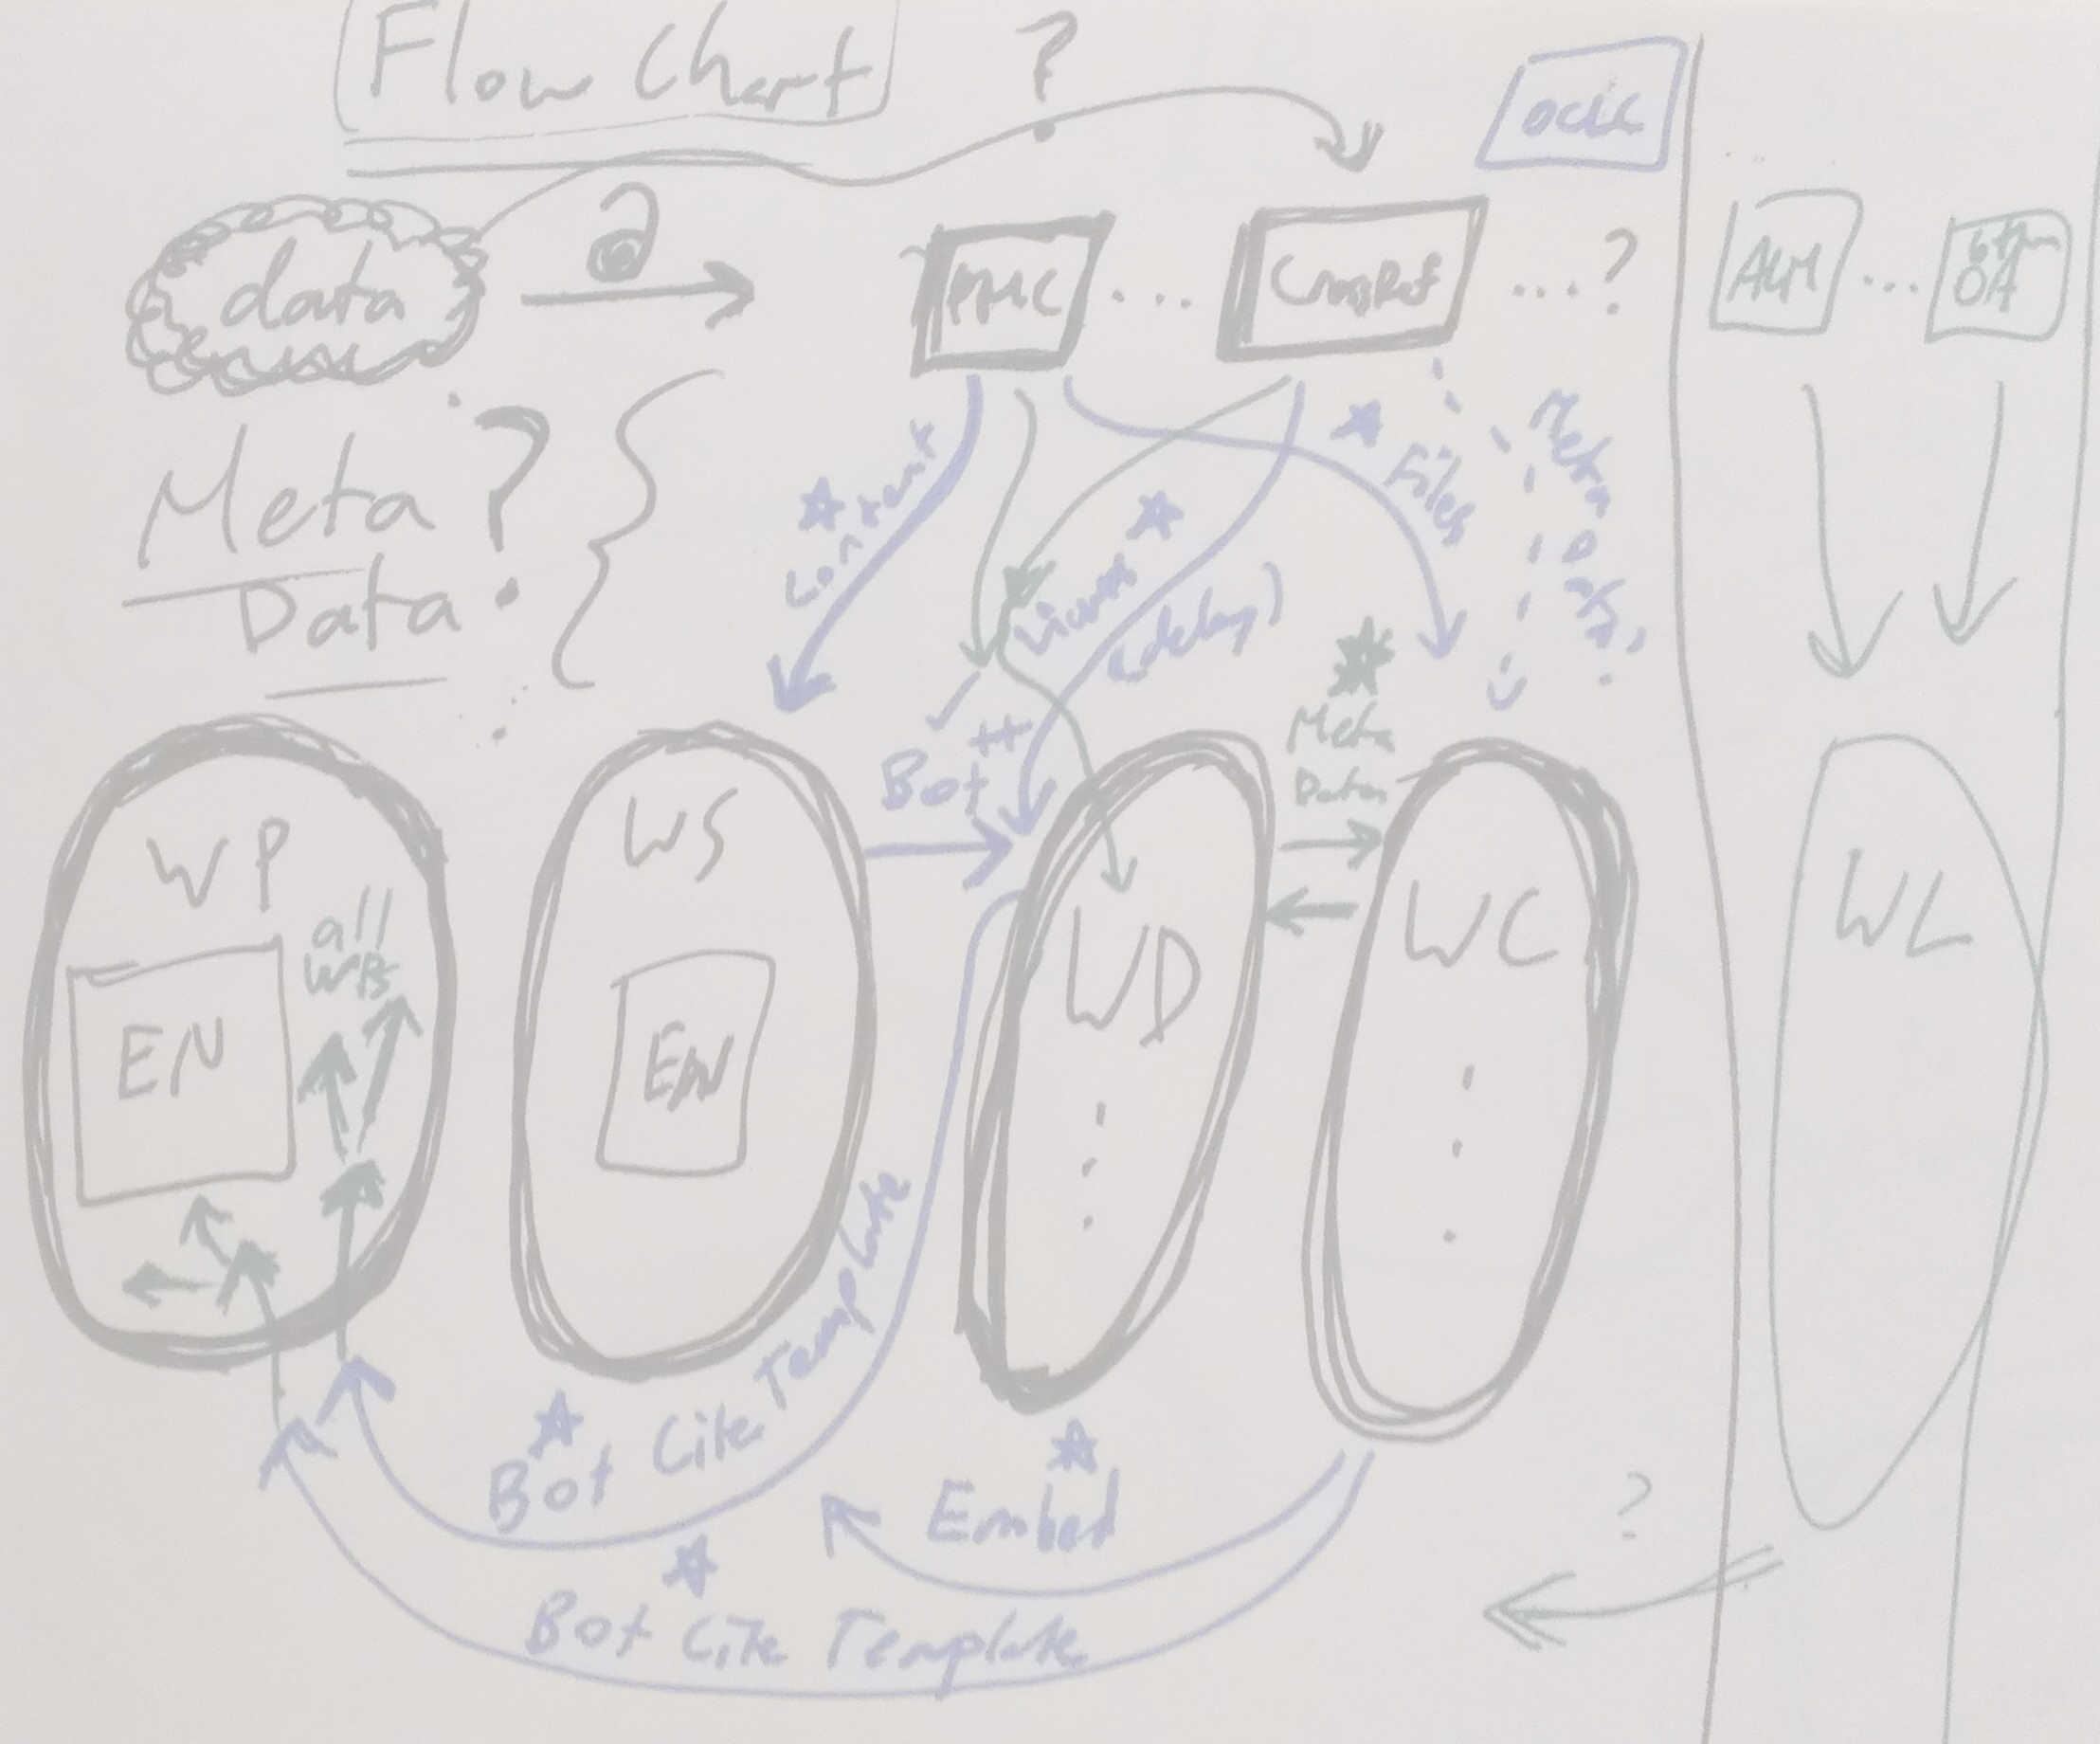 Flow Chart ?
OCLC
data
PMC ... CrossRef ...?
...
OA
Meta ?
Data
Content
Files
Meta
(delay)
Bot ++
Meta
Data
WP
all
WPs
EN
WS
EN
WD
WC
WL
Bot Cite Template
Embed
Bot Cite Template
?